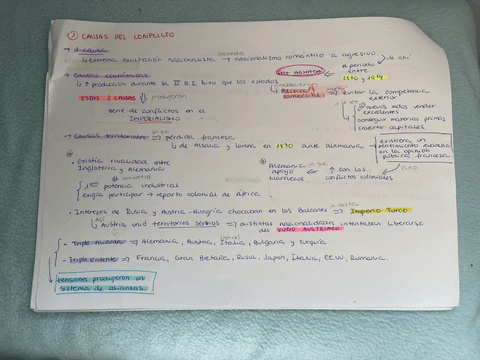 ① CAUSAS DEL CONFLICTO
→ 1ª causa
↳ extrema exaltación nacionalista → nacionalismo romántico a agresivo
→ Causas económicas
PAZ ARMADA
a periodo entre 1870 y 1914
↳ ↑ producción durante la II R.I. hizo que los estados
política comercial
⇒ evitar la competencia exterior
ESTAS 2 CAUSAS
produjeron
serie de conflictos en el IMPERIALISMO
nuevos
vender excedentes
conseguir materias primas
invertir capitales
→ Causas territoriales ⇒ pérdida francesa
↳ de Alsacia y Lorena en 1870 ante Alemania →
existiera un sentimiento
en la opinión pública francesa
• Existía rivalidad entre Inglaterra y Alemania
1ª potencia industrial
Exigía participar → reparto colonial de África
Alemania apoyó Marruecos
⇒ ↑ con los conflictos coloniales
• Intereses de Rusia y Austria-Hungría chocaban en los Balcanes ⇒ Imperio Turco
↳ Austria unió territorios serbios ⇒ distintas nacionalidades intentaban liberarse del YUGO AUSTRIACO
- Triple alianza ⇒ Alemania, Austria, Italia, Bulgaria y Turquía
- Triple entente ⇒ Francia, Gran Bretaña, Rusia, Japón, Italia, EEUU, Rumania
tensiones produjeron un sistema de alianzas